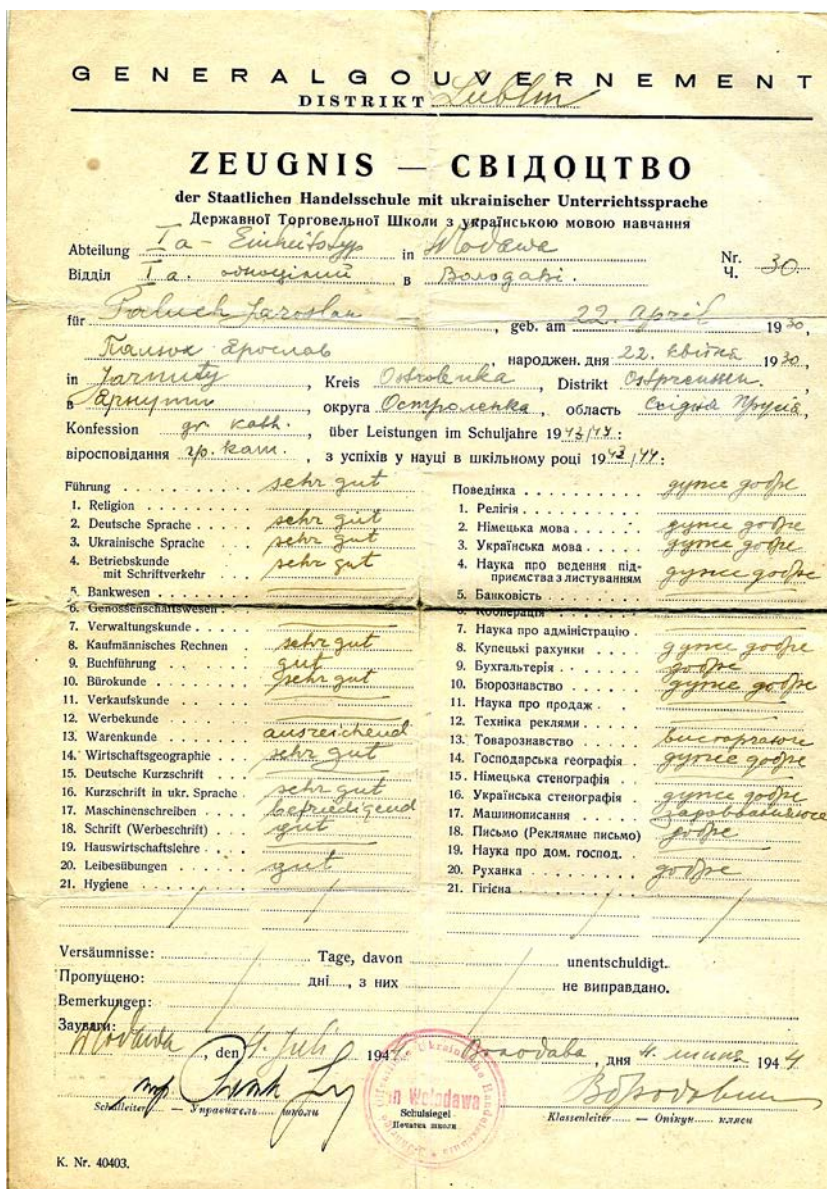 GENERALGOUVERNEMENT
DISTRIKT Lublin
ZEUGNIS — СВІДОЦТВО
der Staatlichen Handelsschule mit ukrainischer Unterrichtssprache
Державної Торговельної Школи з українською мовою навчання
Abteilung Ia - Einheitstyp in Wlodawa Nr.
Відділ Ia. одноцілий в Володаві. Ч. 30
für Paluch Jaroslau, geb. am 22. April 1930,
Палюх Ярослав, народжен. дня 22. квітня 1930,
in Jarnuty, Kreis Ostrolenka, Distrikt Ostpreussen.
в Ярнути, округа Остроленка, область Східна Прусія,
Konfession gr. kath., über Leistungen im Schuljahre 1943/44:
віросповідання гр. кат., з успіхів у науці в шкільному році 1943/44:
Führung sehr gut
1. Religion
2. Deutsche Sprache sehr gut
3. Ukrainische Sprache sehr gut
4. Betriebskunde
mit Schriftverkehr sehr gut
5. Bankwesen
6. Genossenschaftswesen
7. Verwaltungskunde
8. Kaufmännisches Rechnen sehr gut
9. Buchführung gut
10. Bürokunde sehr gut
11. Verkaufskunde
12. Werbekunde
13. Warenkunde ausreichend
14. Wirtschaftsgeographie sehr gut
15. Deutsche Kurzschrift
16. Kurzschrift in ukr. Sprache sehr gut
17. Maschinenschreiben befriedigend
18. Schrift (Werbeschrift) gut
19. Hauswirtschaftslehre
20. Leibesübungen gut
21. Hygiene
Поведінка дуже добре
1. Релігія
2. Німецька мова дуже добре
3. Українська мова дуже добре
4. Наука про ведення під-
приємства з листуванням дуже добре
5. Банковість
6. Кооперація
7. Наука про адміністрацію
8. Купецькі рахунки дуже добре
9. Бухгальтерія добре
10. Бюрознавство дуже добре
11. Наука про продаж
12. Техніка реклями
13. Товарознавство
14. Господарська географія дуже добре
15. Німецька стенографія
16. Українська стенографія дуже добре
17. Машинописання
18. Письмо (Реклямне письмо) добре
19. Наука про дом. господ.
20. Руханка добре
21. Гігієна
Versäumnisse: Tage, davon unentschuldigt.
Пропущено: дні, з них не виправдано.
Bemerkungen:
Зауваги:
Wlodawa, den 4. Juli 1944 Володава, дня 4. липня 1944
Schulleiter — Управитель школи
in Wolodawa
Schulsiegel
Печатка школи
Klassenleiter — Опікун кляси
K. Nr. 40403.